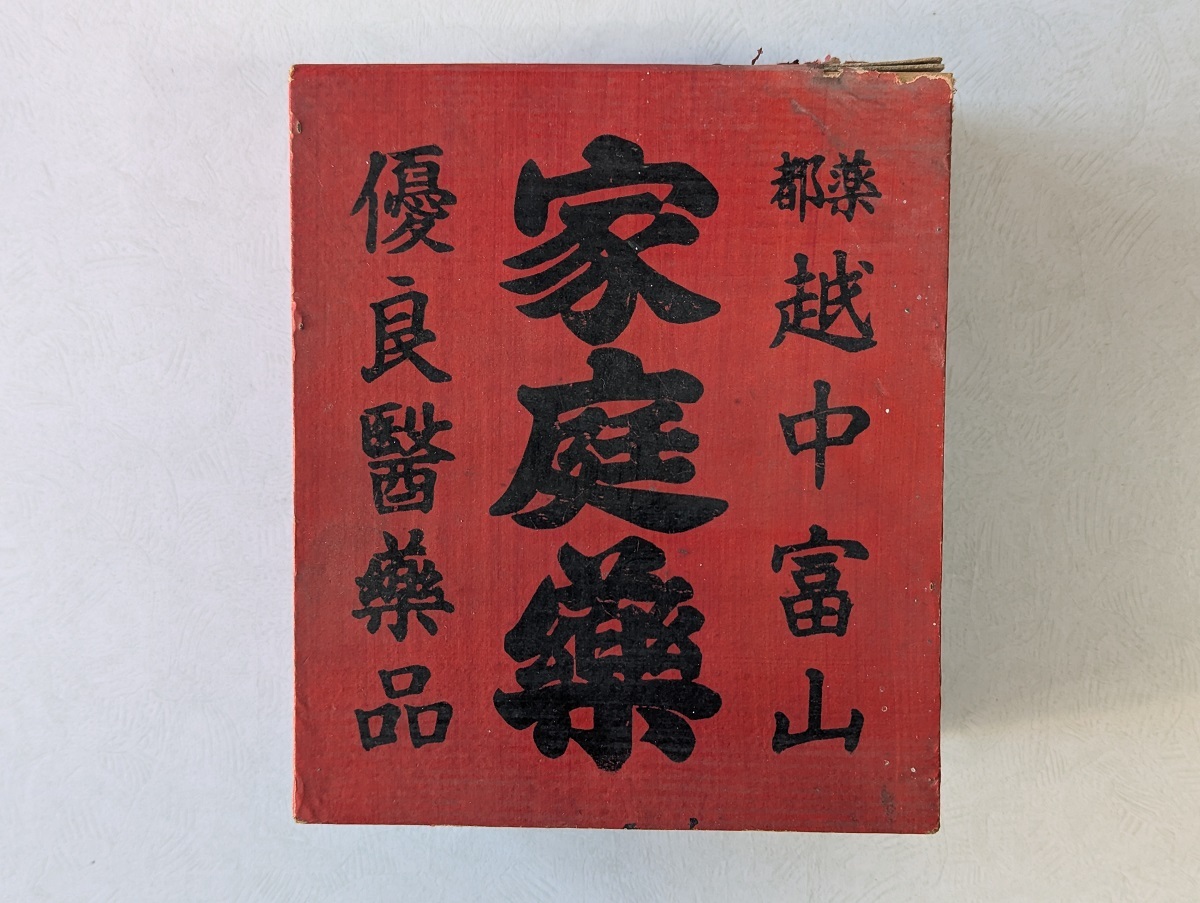 薬都
越中富山
家庭藥
優良醫藥品